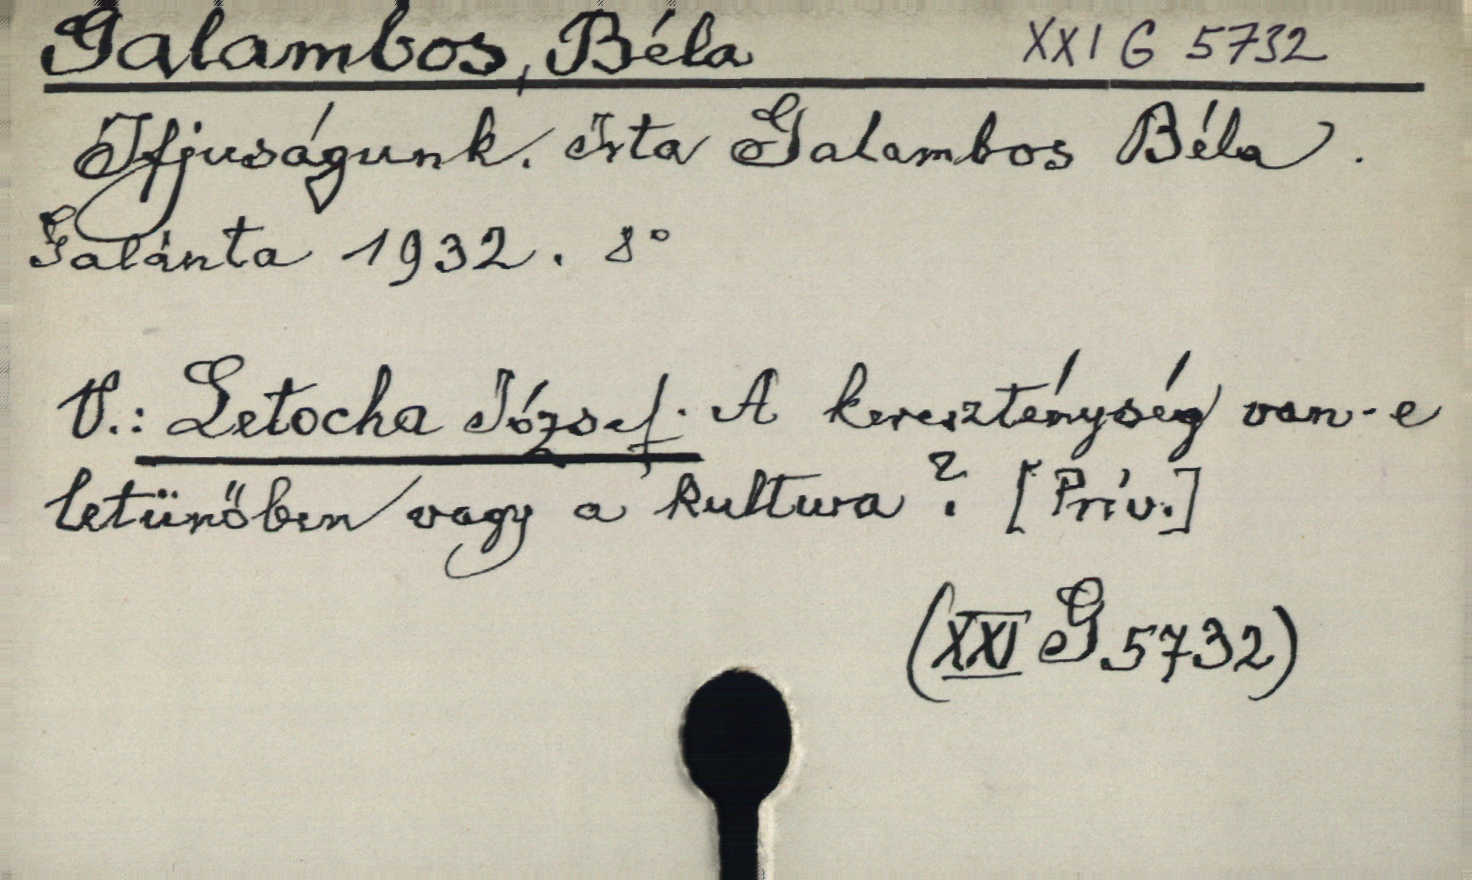 Galambos, Béla XXI G 5732
Ifjuságunk. Irta Galambos Béla.
Galánta 1932. 8°
V.: Letocha József. A kereszténység van-e
letünőben vagy a kultura? [Priv.]
(XXI G 5732)